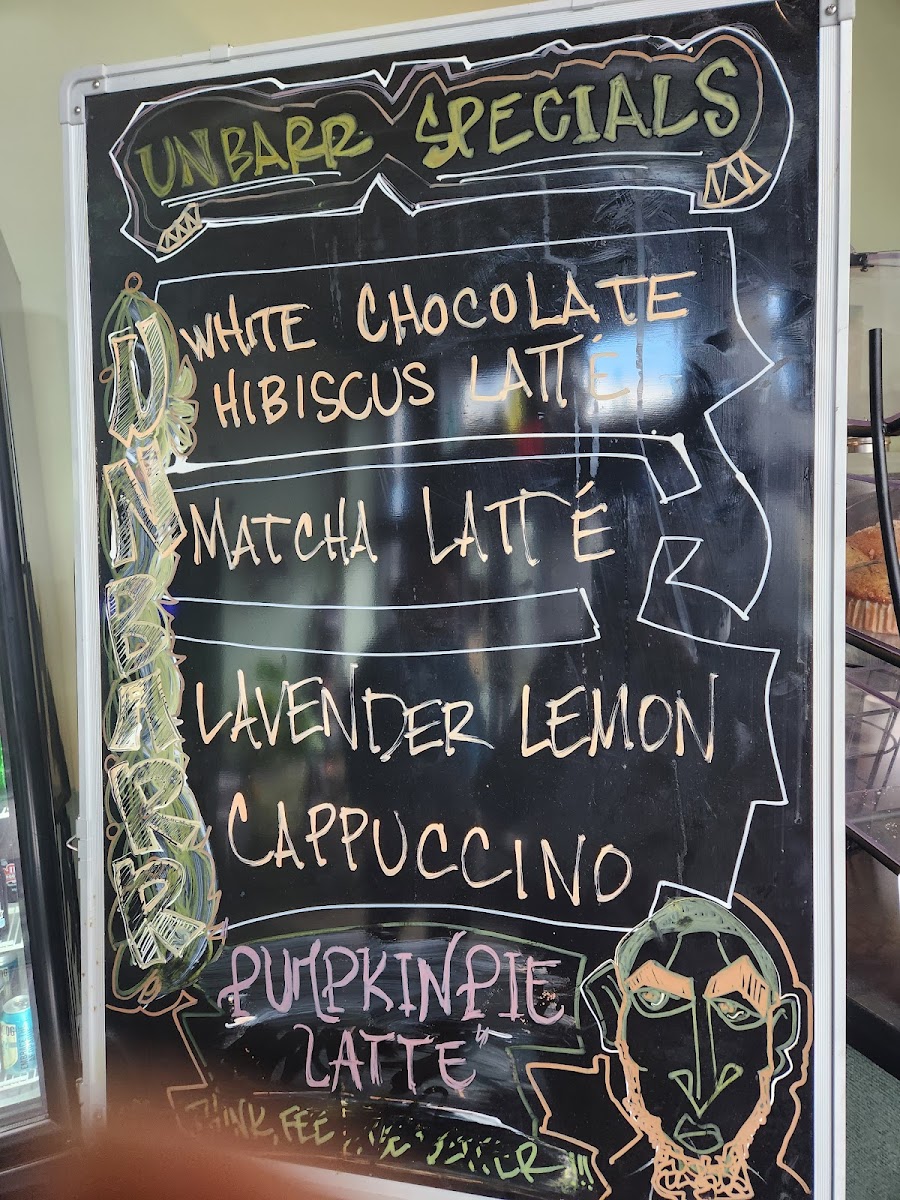 UNBARR SPECIALS
UNBARR
WHITE CHOCOLATE
HIBISCUS LATTÉ
MATCHA LATTÉ
LAVENDER LEMON
CAPPUCCINO
PUMPKIN PIE
LATTE"
THINK, FEEL